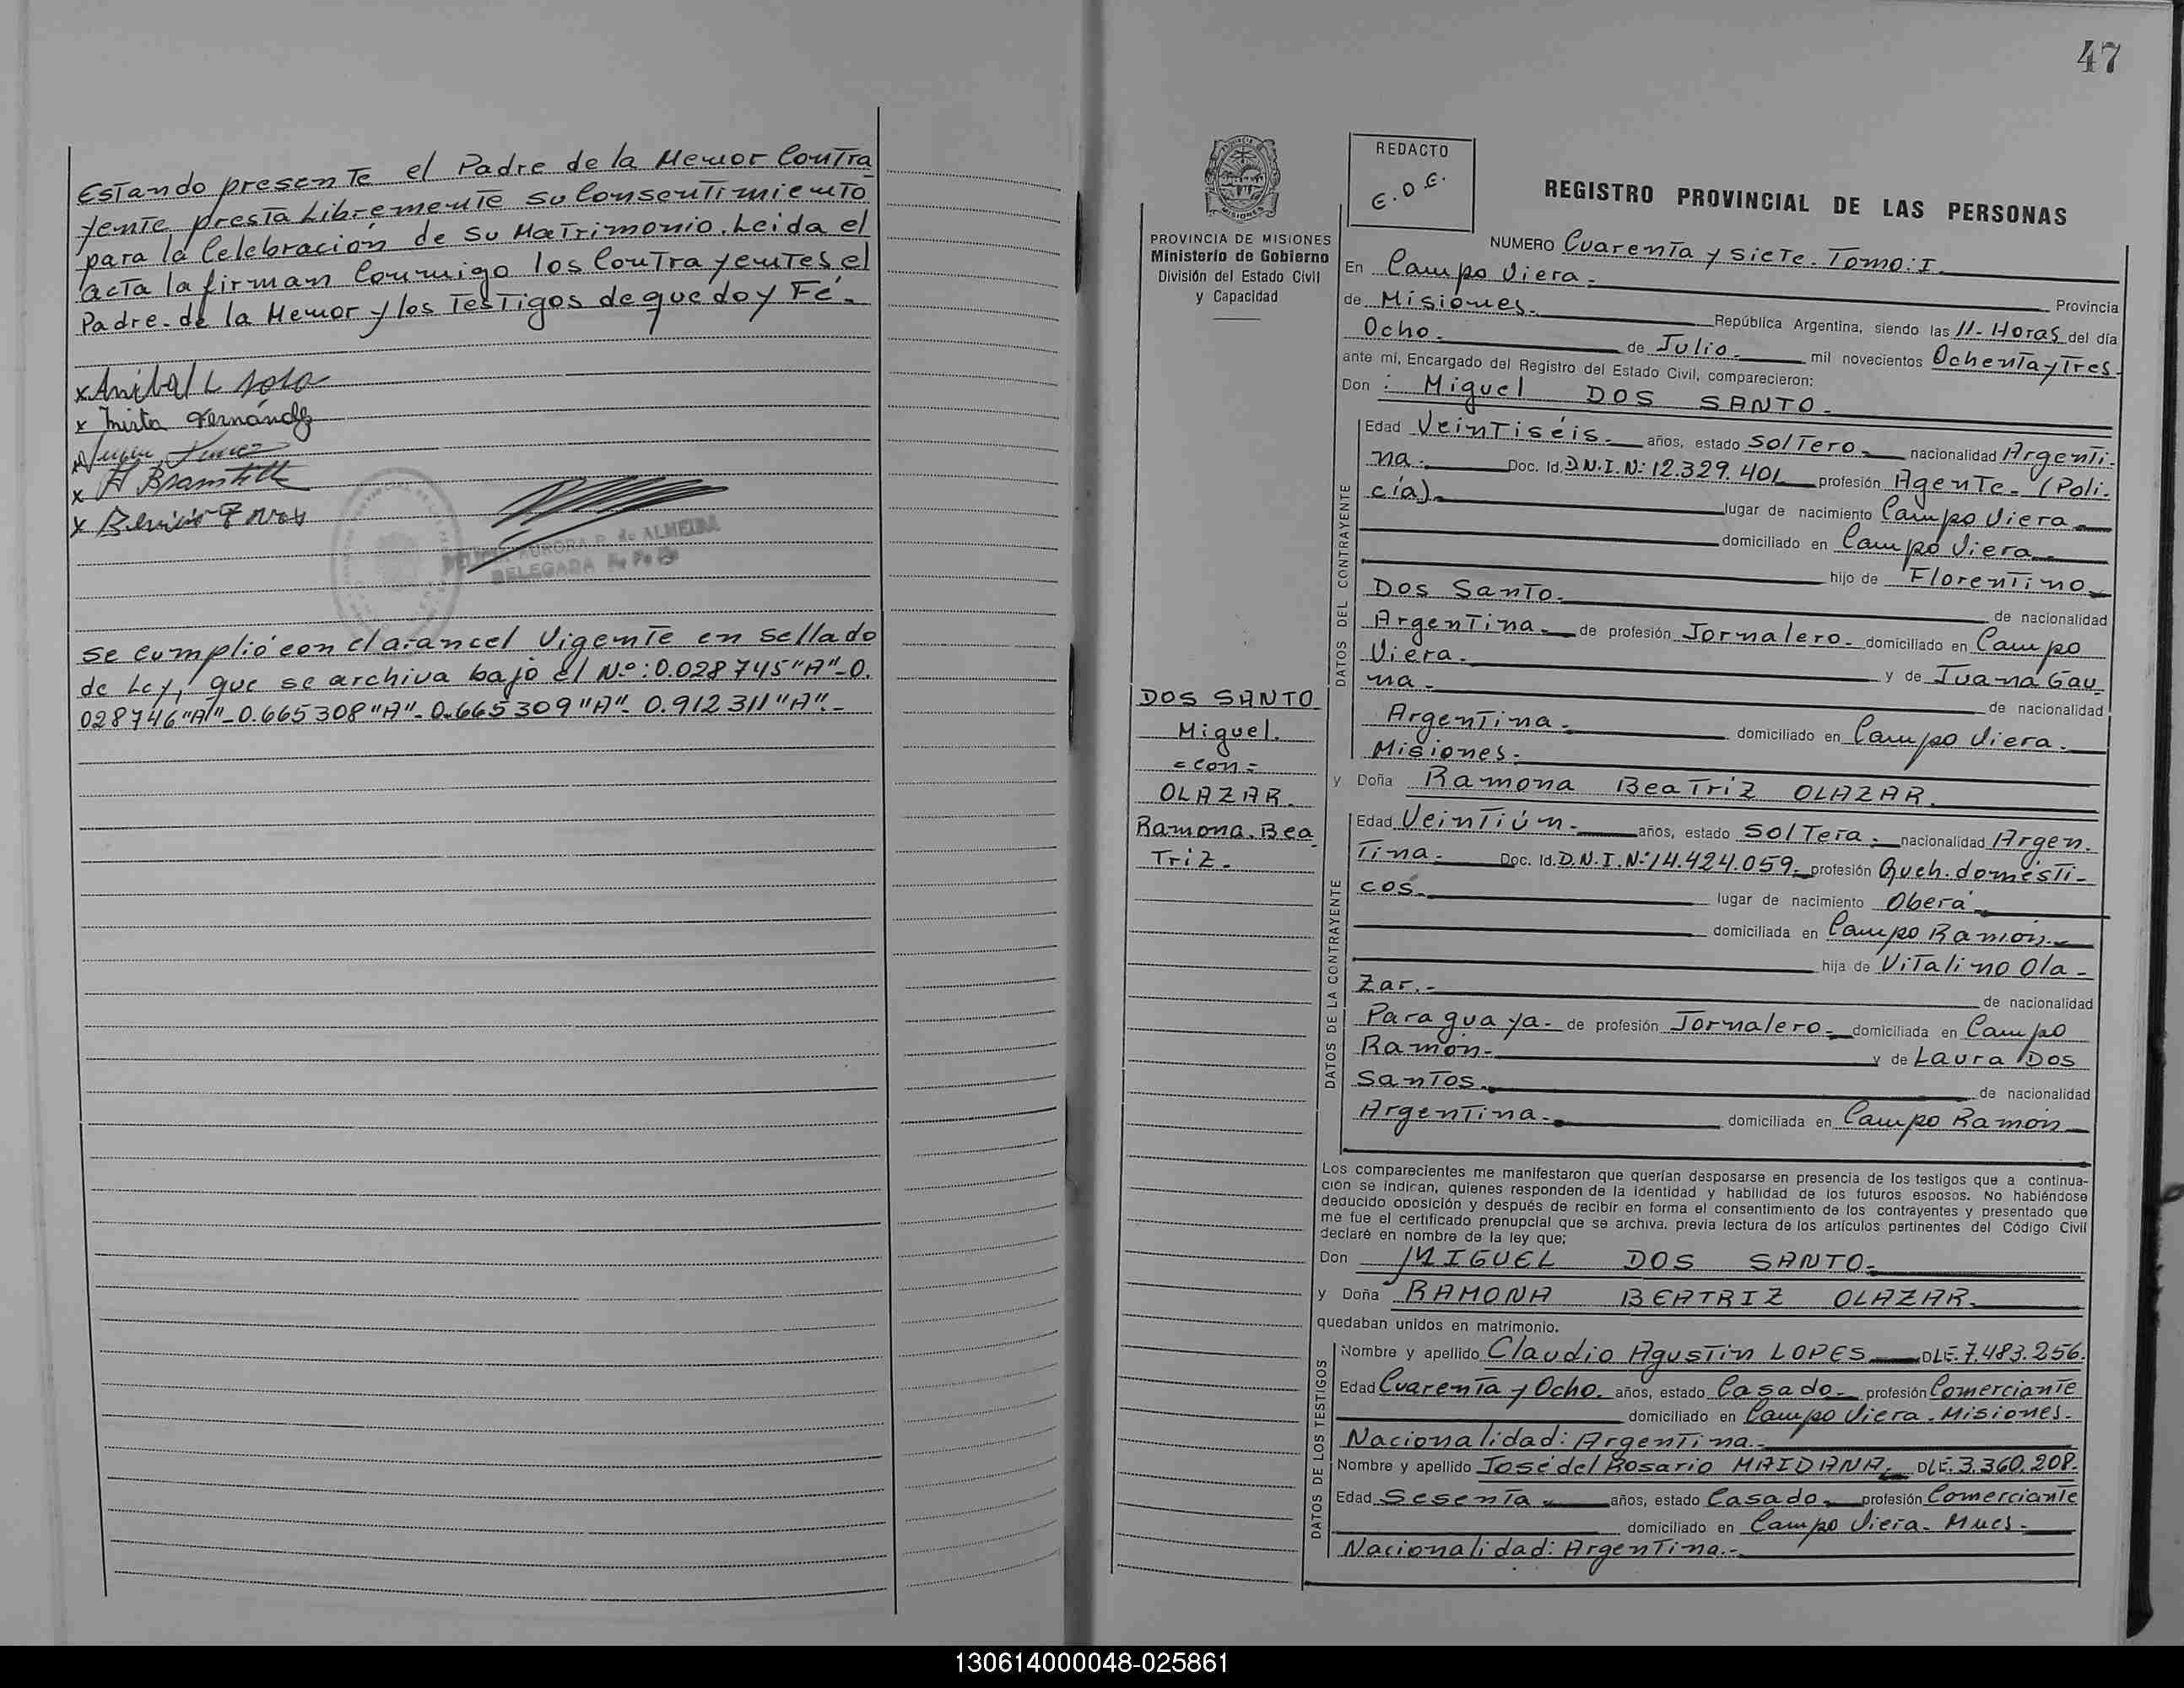 Estando presente el Padre de la Menor Contra
yente presta Libremente su Consentimiento
para la Celebración de su Matrimonio. Leida el
acta la firman Conmigo los Contrayentes el
Padre de la Menor y los Testigos de que doy Fé.-
x Anibal L Sosa
x Mirta Fernández
x
x
x
AURORA P. de ALMEIDA
DELEGADA
Se cumplió con el arancel Vigente en sellado
de Ley, que se archiva bajo el Nº: 0.028745 "A"-0.
028746 "A"-0.665308 "A"-0.665309 "A"- 0.912311 "A".-
47
PROVINCIA DE MISIONES
Ministerio de Gobierno
División del Estado Civil
y Capacidad
DOS SANTO
Miguel.
= con =
OLAZAR.
Ramona. Bea
Triz.-
REDACTO
E.D.E.
REGISTRO PROVINCIAL DE LAS PERSONAS
NUMERO Cuarenta y siete. Tomo: I
En Campo Viera.- Provincia
de Misiones.- República Argentina, siendo las 11- Horas del día
Ocho.- de Julio.- mil novecientos Ochenta y Tres.
ante mí, Encargado del Registro del Estado Civil, comparecieron:
Don : Miguel DOS SANTO.-
DATOS DEL CONTRAYENTE
Edad Veintiséis.- años, estado Soltero.- nacionalidad Argenti-
na.- Doc. Id. D.N.I. N: 12.329.401 profesión Agente.- (Poli-
cía).- lugar de nacimiento Campo Viera.-
domiciliado en Campo Viera.-
hijo de Florentino
Dos Santo.- de nacionalidad
Argentina.- de profesión Jornalero.- domiciliado en Campo
Viera.- y de Juana Gau
na.- de nacionalidad
Argentina.- domiciliado en Campo Viera.-
Misiones.-
y Doña Ramona Beatriz OLAZAR.
DATOS DE LA CONTRAYENTE
Edad Veintiún.- años, estado Soltera.- nacionalidad Argen.
tina.- Doc. Id. D.N.I. N: 14.424.059.- profesión Queh. domésti-
cos.- lugar de nacimiento Oberá.-
domiciliada en Campo Ramón.-
hija de Vitalino Ola-
zar.- de nacionalidad
Paraguaya.- de profesión Jornalero.- domiciliada en Campo
Ramón.- y de Laura Dos
Santos.- de nacionalidad
Argentina.- domiciliada en Campo Ramón
Los comparecientes me manifestaron que querían desposarse en presencia de los testigos que a continua-
ción se indican, quienes responden de la identidad y habilidad de los futuros esposos. No habiéndose
deducido oposición y después de recibir en forma el consentimiento de los contrayentes y presentado que
me fue el certificado prenupcial que se archiva, previa lectura de los artículos pertinentes del Código Civil
declaré en nombre de la ley que;
Don MIGUEL DOS SANTO.-
y Doña RAMONA BEATRIZ OLAZAR.
quedaban unidos en matrimonio.
DATOS DE LOS TESTIGOS
Nombre y apellido Claudio Agustin LOPES DLE. 7.483.256.
Edad Cuarenta y Ocho. años, estado Casado.- profesión Comerciante
domiciliado en Campo Viera. Misiones.
Nacionalidad: Argentina.-
Nombre y apellido José del Rosario MAIDANA. DLE. 3.360.208.
Edad Sesenta.- años, estado Casado.- profesión Comerciante
domiciliado en Campo Viera. Mnes.-
Nacionalidad: Argentina.-
130614000048-025861